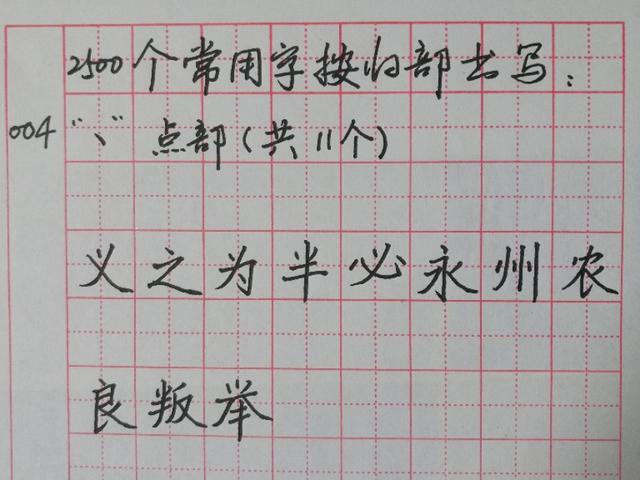 2500个常用字按归部书写：
004 “丶” 点部(共11个)
义之为半必永州农
良叛举